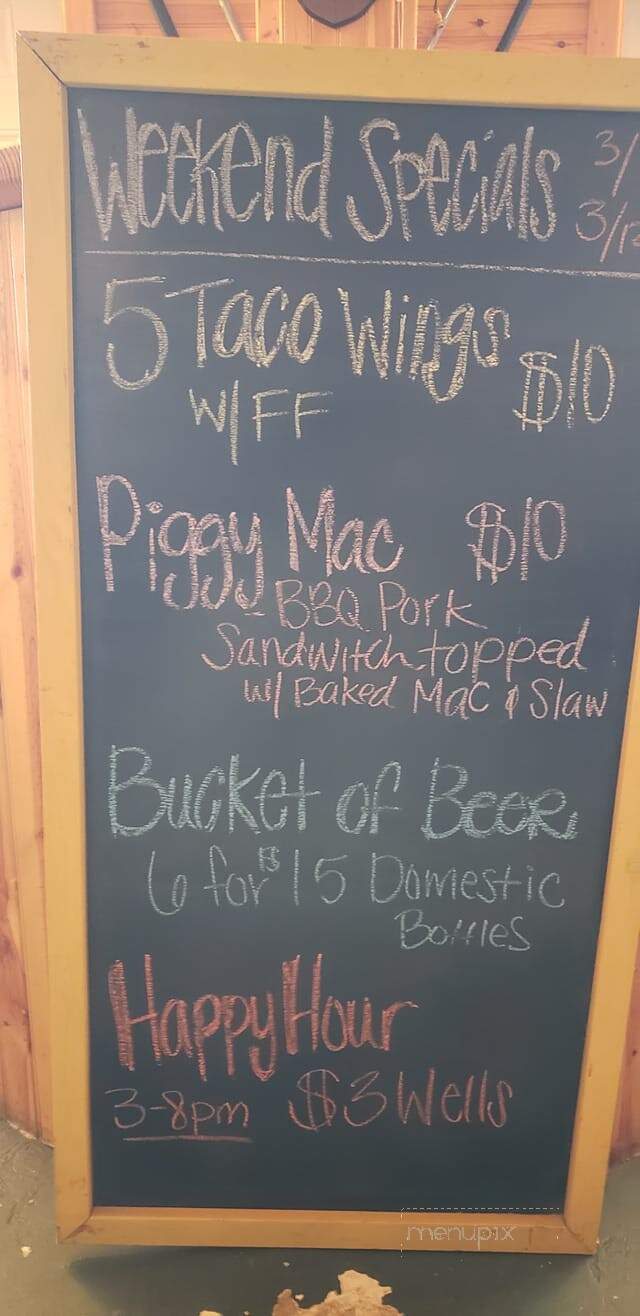 Weekend Specials 3/
3/12
5 Taco Wings $10
W/ FF
Piggy Mac $10
- BBQ Pork
Sandwitch topped
w/ Baked Mac & Slaw
Bucket of Beer
6 for $15 Domestic
Bottles
Happy Hour
3-8pm $3 Wells
menupix